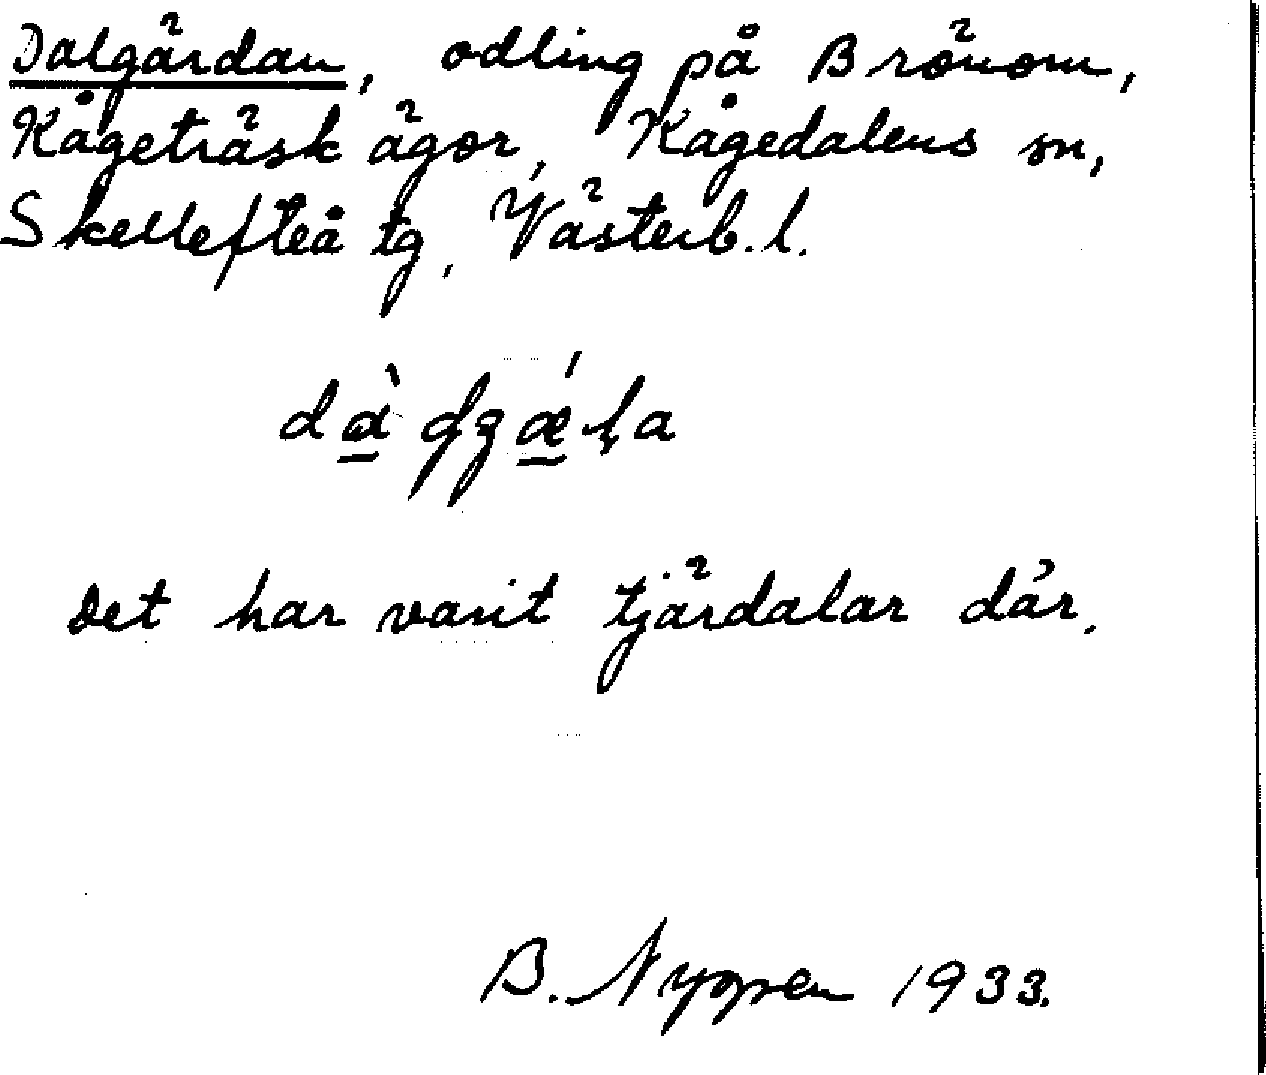 Dalgärdan, odling på Brönom,
Kågeträsk ägor, Kågedalens sn,
Skellefteå tg, Västerb. l.
Det har varit tjärdalar där.
B. Nygren 1933.